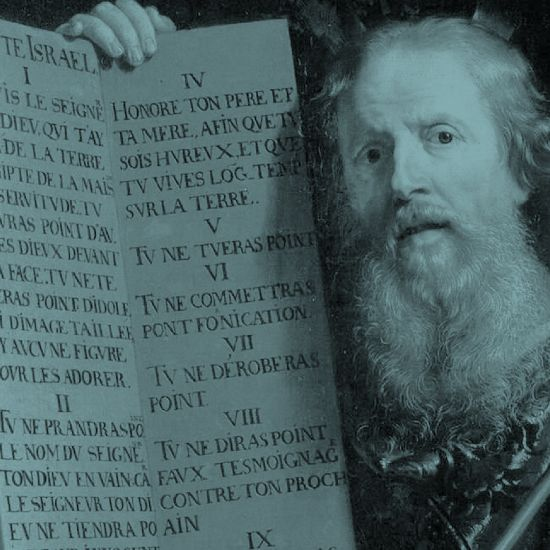 TE ISRAEL
I
VIS LE SEIGNE
DIEV, QVI T'AY
DE LA TERRE
GIPTE DE LA MAIS
SERVITVDE, TV
VRAS POINT D'AV
ES DIEVX DEVANT
A FACE, TV NE TE
ERAS POINT DIDOLE
I DIMAGE TAILLEE
Y AVCVNE FIGVRE
OVR LES ADORER.
II
TV NE PRANDRAS PO
LE NOM DV SEIGNE
TON DIEV EN VAIN, CA
LE SEIGNEVR TON DI
EV NE TIENDRA PO
IV
HONORE TON PERE ET
TA MERE, AFIN QVE TV
SOIS HVREVX, ET QVE
TV VIVES LOG TEMP
SVR LA TERRE.
V
TV NE TVERAS POINT
VI
TV NE COMMETTRAS
POINT FONICATION.
VII
TV NE DEROBERAS
POINT
VIII
TV NE DIRAS POINT
FAVX TESMOIGNAG
CONTRE TON PROCH
AIN
IX